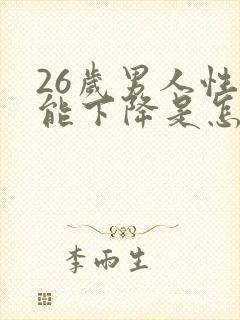 26歲男人性
能下降是怎
李雨生